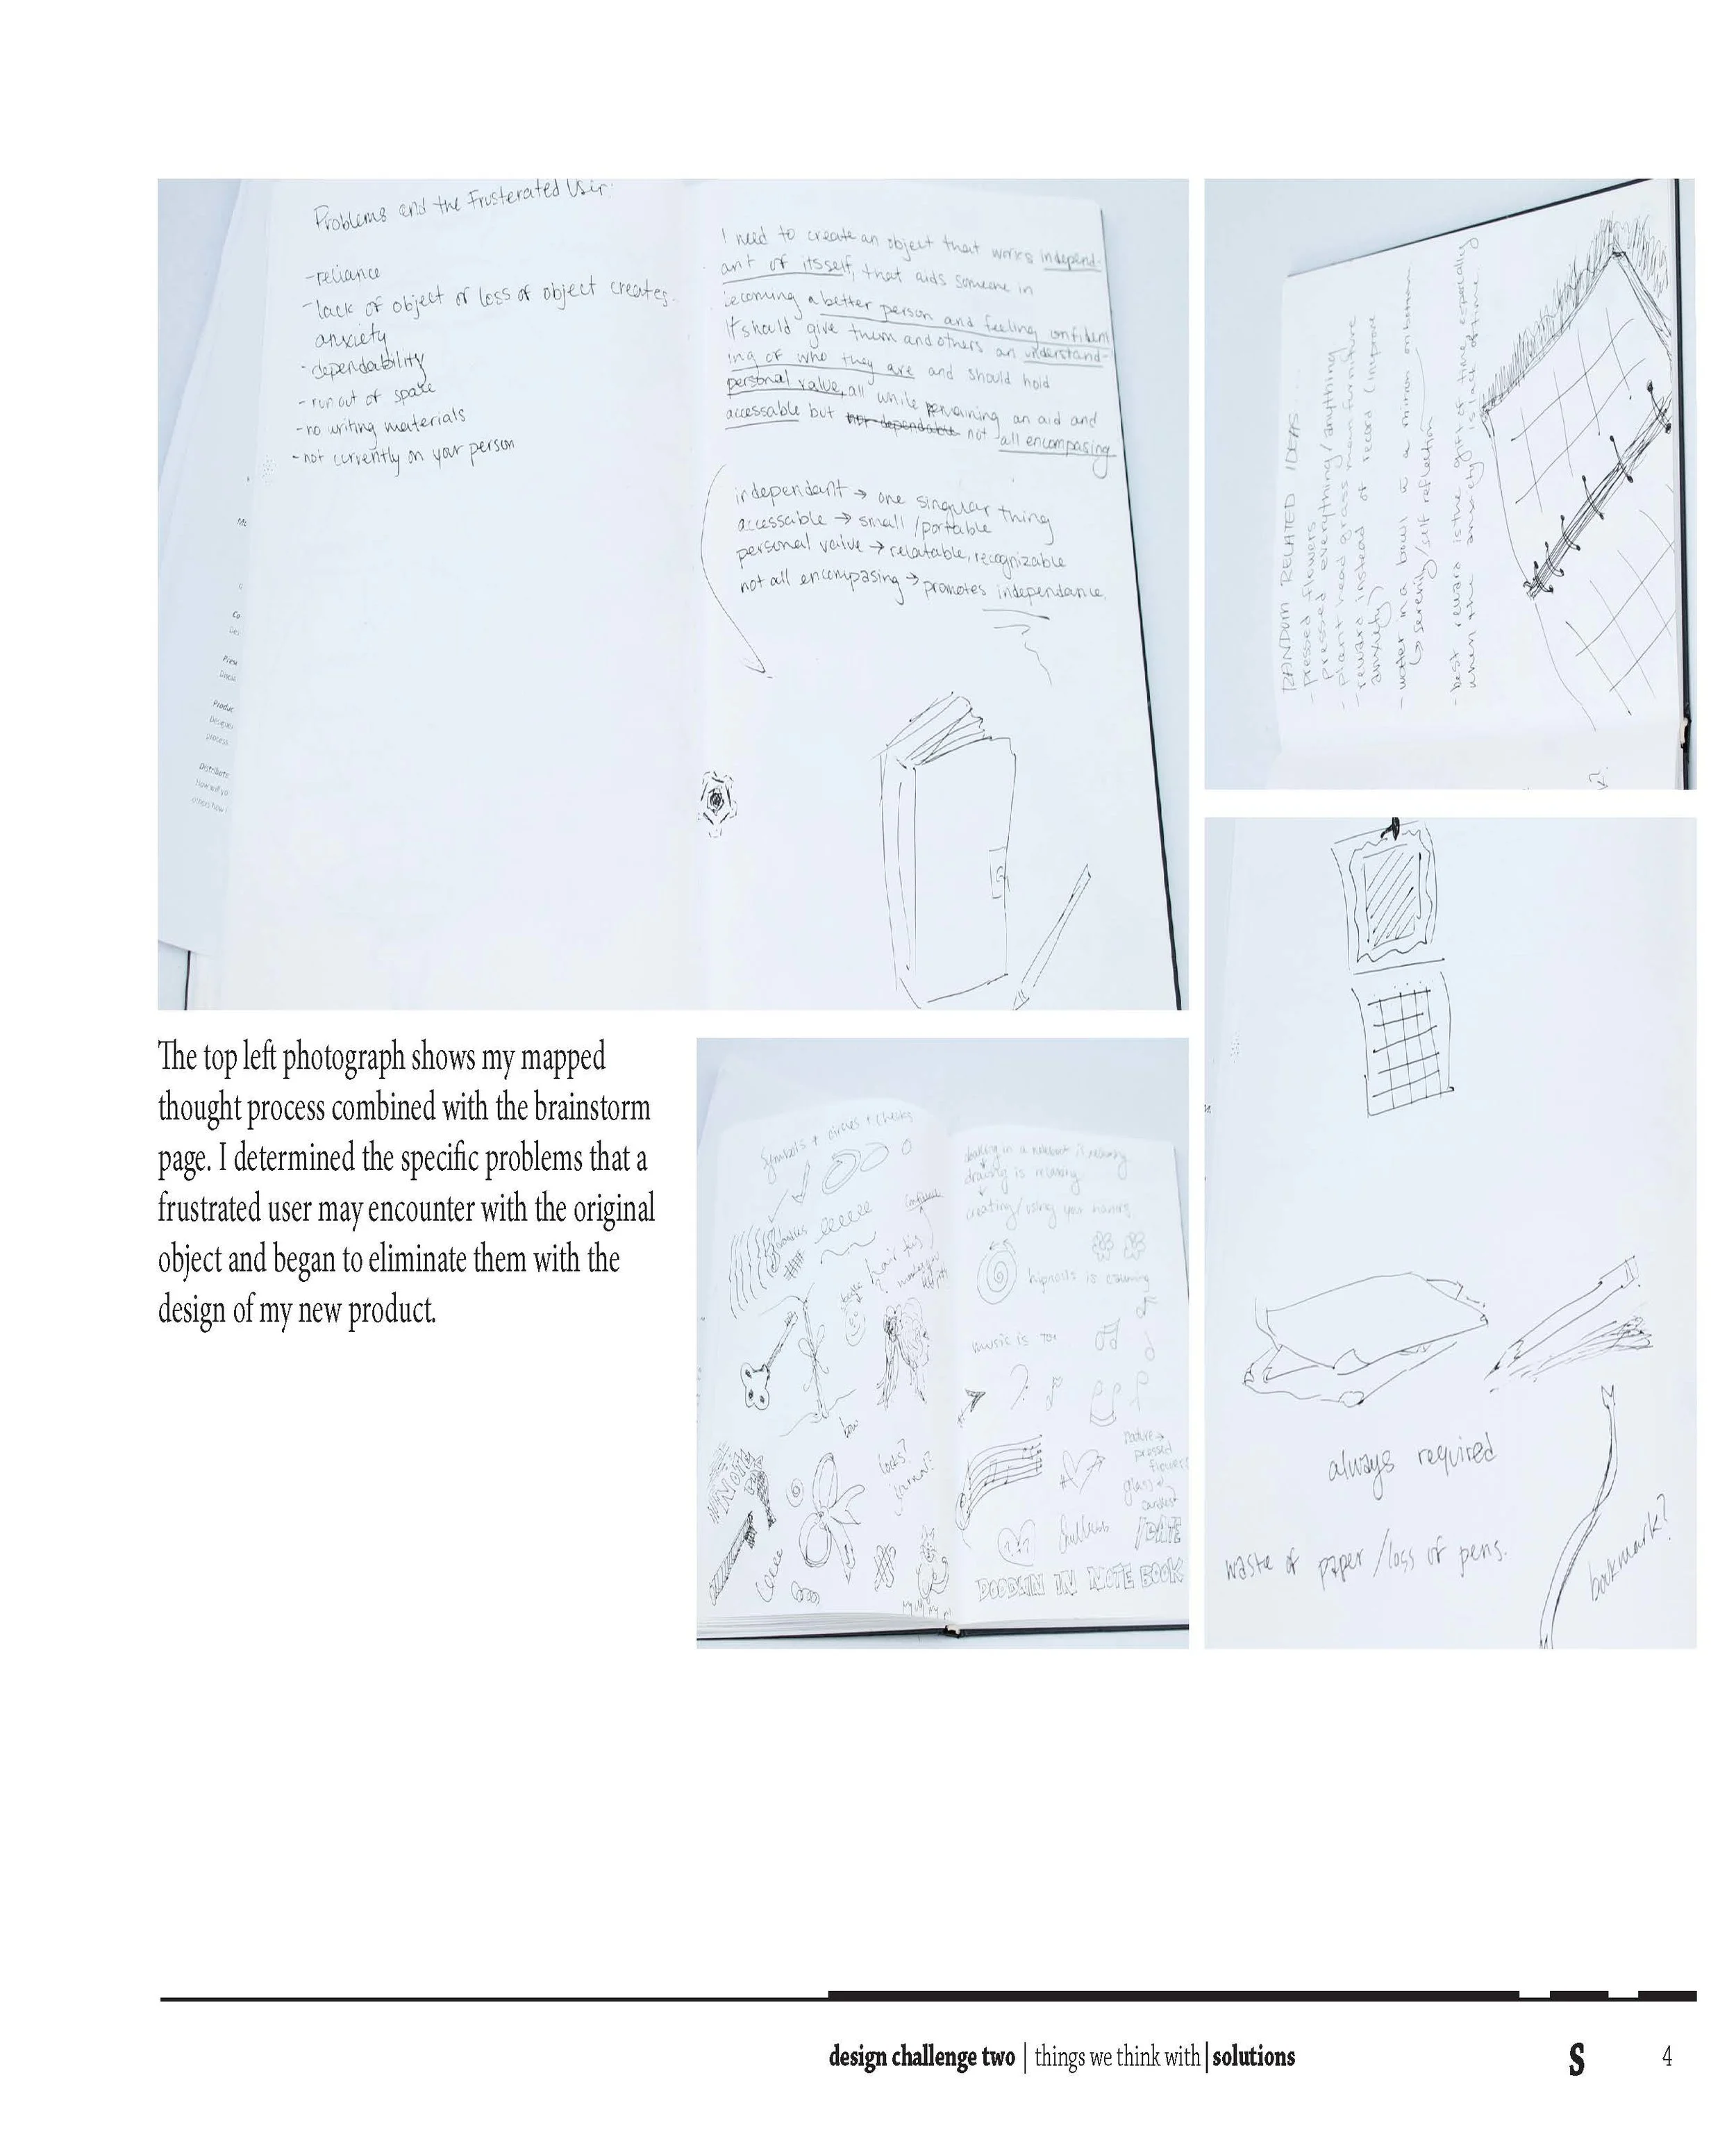 Problems and the Frusterated User:
-reliance
-lack of object or loss of object creates
anxiety
-dependability
-run out of space
-no writing materials
-not currently on your person
I need to create an object that works independ-
ant of itsself, that aids someone in
becoming a better person and feeling confident
It should give them and others an understand-
ing of who they are and should hold
personal value, all while remaining an aid and
accessable but not dependable not all encompasing
independant → one singular thing
accessable → small/portable
personal value → relatable, recognizable
not all encompasing → promotes independance
RANDOM RELATED IDEAS...
-pressed flowers
pressed everything/anything
-plant head grass man furniture
-reward instead of record (improve
anxiety)
-water in a bowl w a mirror on bottom
↳ serenity/self reflection
-best reward is the gift of time especially
when the anxiety is lack of time
The top left photograph shows my mapped
thought process combined with the brainstorm
page. I determined the specific problems that a
frustrated user may encounter with the original
object and began to eliminate them with the
design of my new product.
Symbols + circles + checks
doodles
hair ties
bow
locks?
drawing is relaxing
creating/using your hands
hipnosis is calming
music is too
nature →
pressed
flowers
glass +
DOODLIN IN NOTE BOOK
always required
waste of paper/loss of pens.
bookmark?
design challenge two | things we think with | solutions
S 4